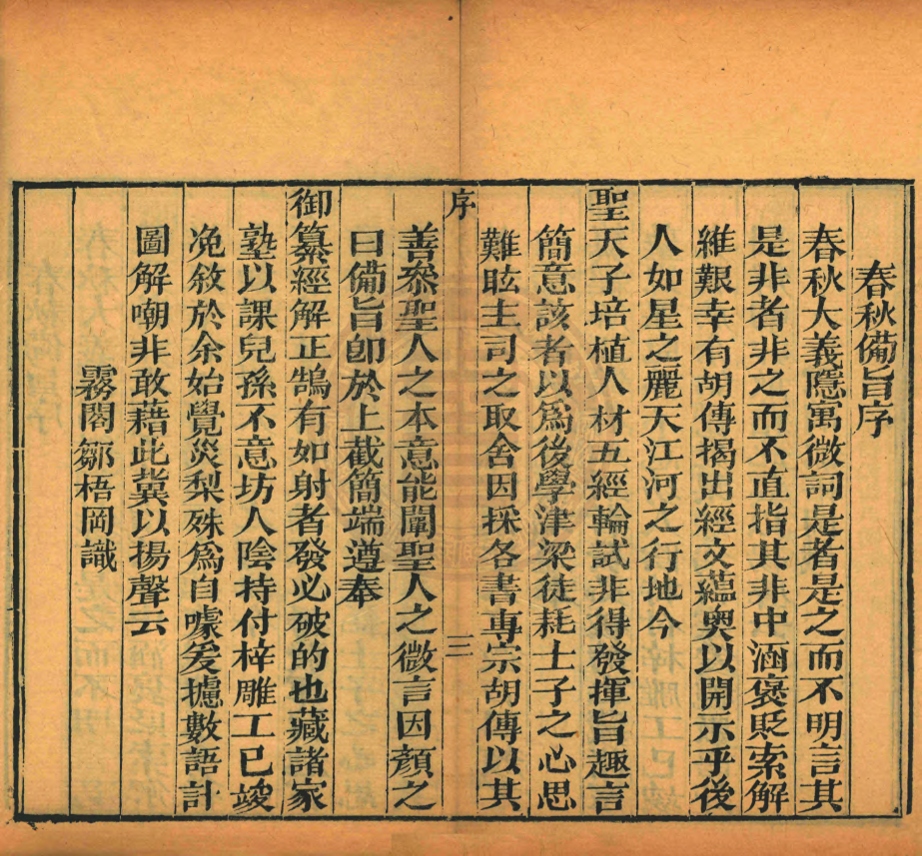 春秋備旨序
春秋大義隱寓微詞是者是之而不明言其
是非者非之而不直指其非中涵褒貶索解
維艱幸有胡傳揭出經文蘊奧以開示乎後
人如星之麗天江河之行地今
聖天子培植人材五經輪試非得發揮旨趣言
簡意該者以爲後學津梁徒耗士子之心思
難眩主司之取舍因採各書專宗胡傳以其
序
三
善叅聖人之本意能闡聖人之微言因顏之
曰備旨卽於上截簡端遵奉
御纂經解正鵠有如射者發必破的也藏諸家
塾以課兒孫不意坊人陰持付梓雕工已竣
凂敘於余始覺災梨殊爲自噱爰攄數語計
圖解嘲非敢藉此冀以揚聲云
霧閣鄒梧岡識